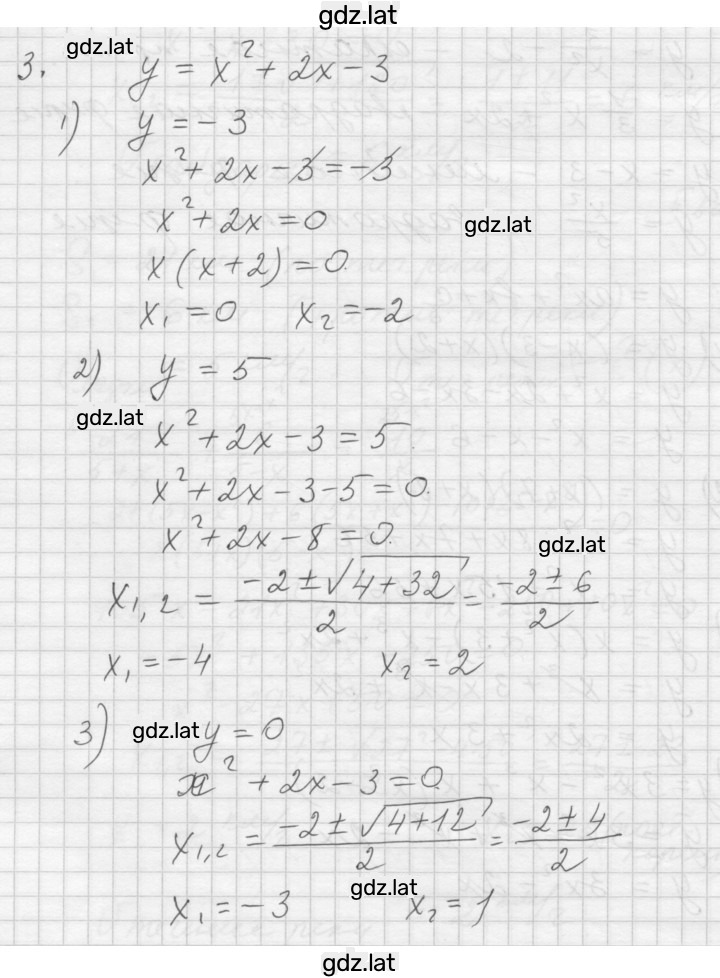 gdz.lat
gdz.lat
3. y = x² + 2x - 3
1) y = -3
x² + 2x - 3 = -3
x² + 2x = 0
gdz.lat
x(x+2) = 0.
x₁ = 0 x₂ = -2
2) y = 5
gdz.lat
x² + 2x - 3 = 5.
x² + 2x - 3 - 5 = 0.
x² + 2x - 8 = 0.
gdz.lat
x₁,₂ = (-2 ± √(4+32))/2 = (-2 ± 6)/2
x₁ = -4 x₂ = 2
3) gdz.lat y = 0
x² + 2x - 3 = 0
x₁,₂ = (-2 ± √(4+12))/2 = (-2 ± 4)/2
gdz.lat
x₁ = -3 x₂ = 1
gdz.lat